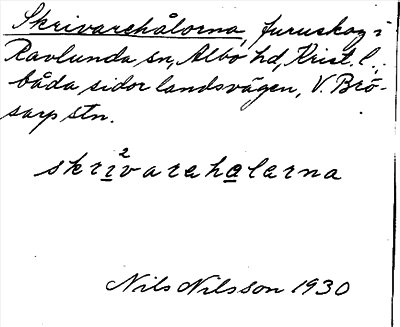 Skrivarehålorna, furuskog i
Ravlunda sn, Albo hd, Krist. l.,
båda sidor landsvägen, V. Brö-
sarp stn.
skri²varehalarna
Nils Nilsson 1930